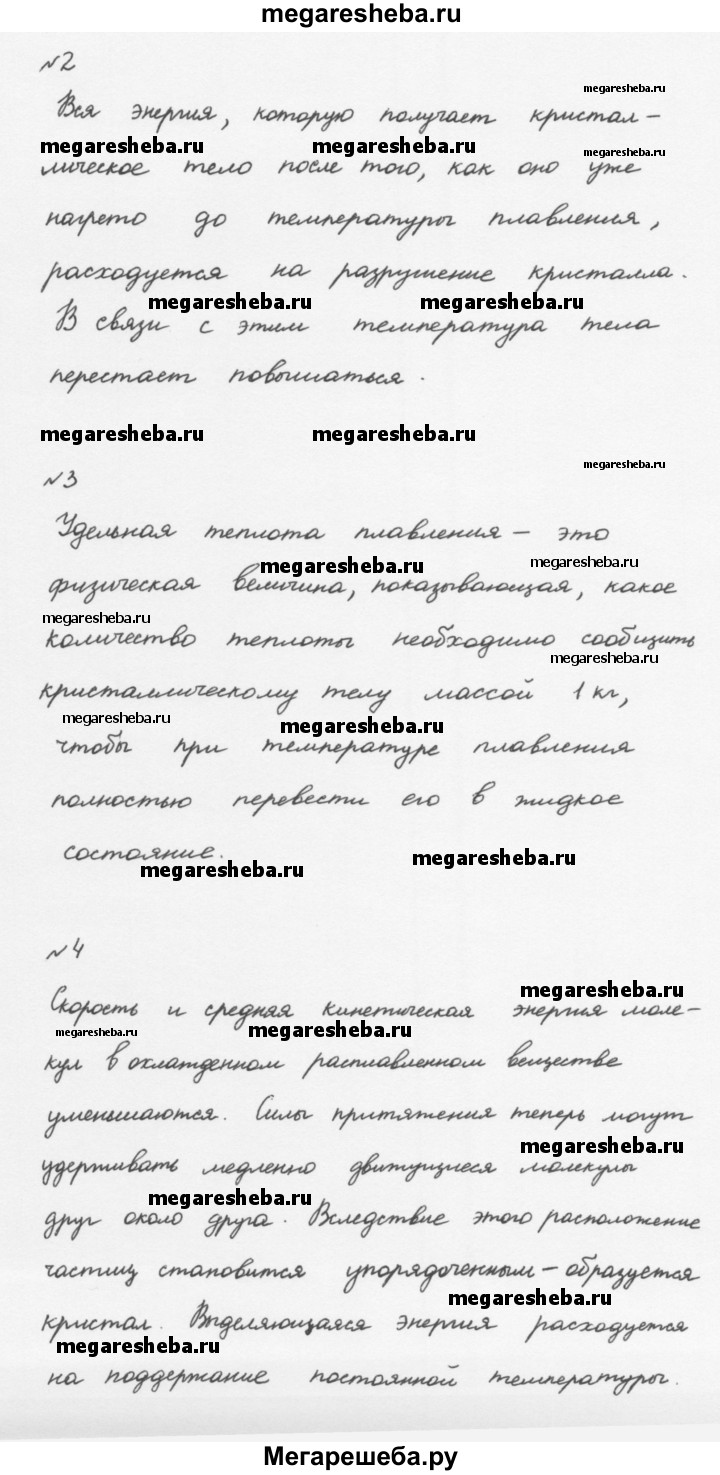 megaresheba.ru
№2
megaresheba.ru
Вся энергия, которую получает кристал-
megaresheba.ru megaresheba.ru megaresheba.ru
лическое тело после того, как оно уже
нагрето до температуры плавления,
расходуется на разрушение кристалла.
megaresheba.ru megaresheba.ru
В связи с этим температура тела
перестает повышаться.
megaresheba.ru megaresheba.ru
megaresheba.ru
№3
Удельная теплота плавления – это
megaresheba.ru megaresheba.ru
физическая величина, показывающая, какое
megaresheba.ru
количество теплоты необходимо сообщить
megaresheba.ru
кристаллическому телу массой 1 кг,
megaresheba.ru megaresheba.ru
чтобы при температуре плавления
полностью перевести его в жидкое
состояние.
megaresheba.ru megaresheba.ru
№4
megaresheba.ru
Скорость и средняя кинетическая энергия моле-
megaresheba.ru megaresheba.ru
кул в охлажденном расплавленном веществе
уменьшаются. Силы притяжения теперь могут
megaresheba.ru
удерживать медленно движущиеся молекулы
megaresheba.ru
друг около друга. Вследствие этого расположение
частиц становится упорядоченным – образуется
megaresheba.ru
кристал. Выделяющаяся энергия расходуется
megaresheba.ru
на поддержание постоянной температуры.
Мегарешеба.ру